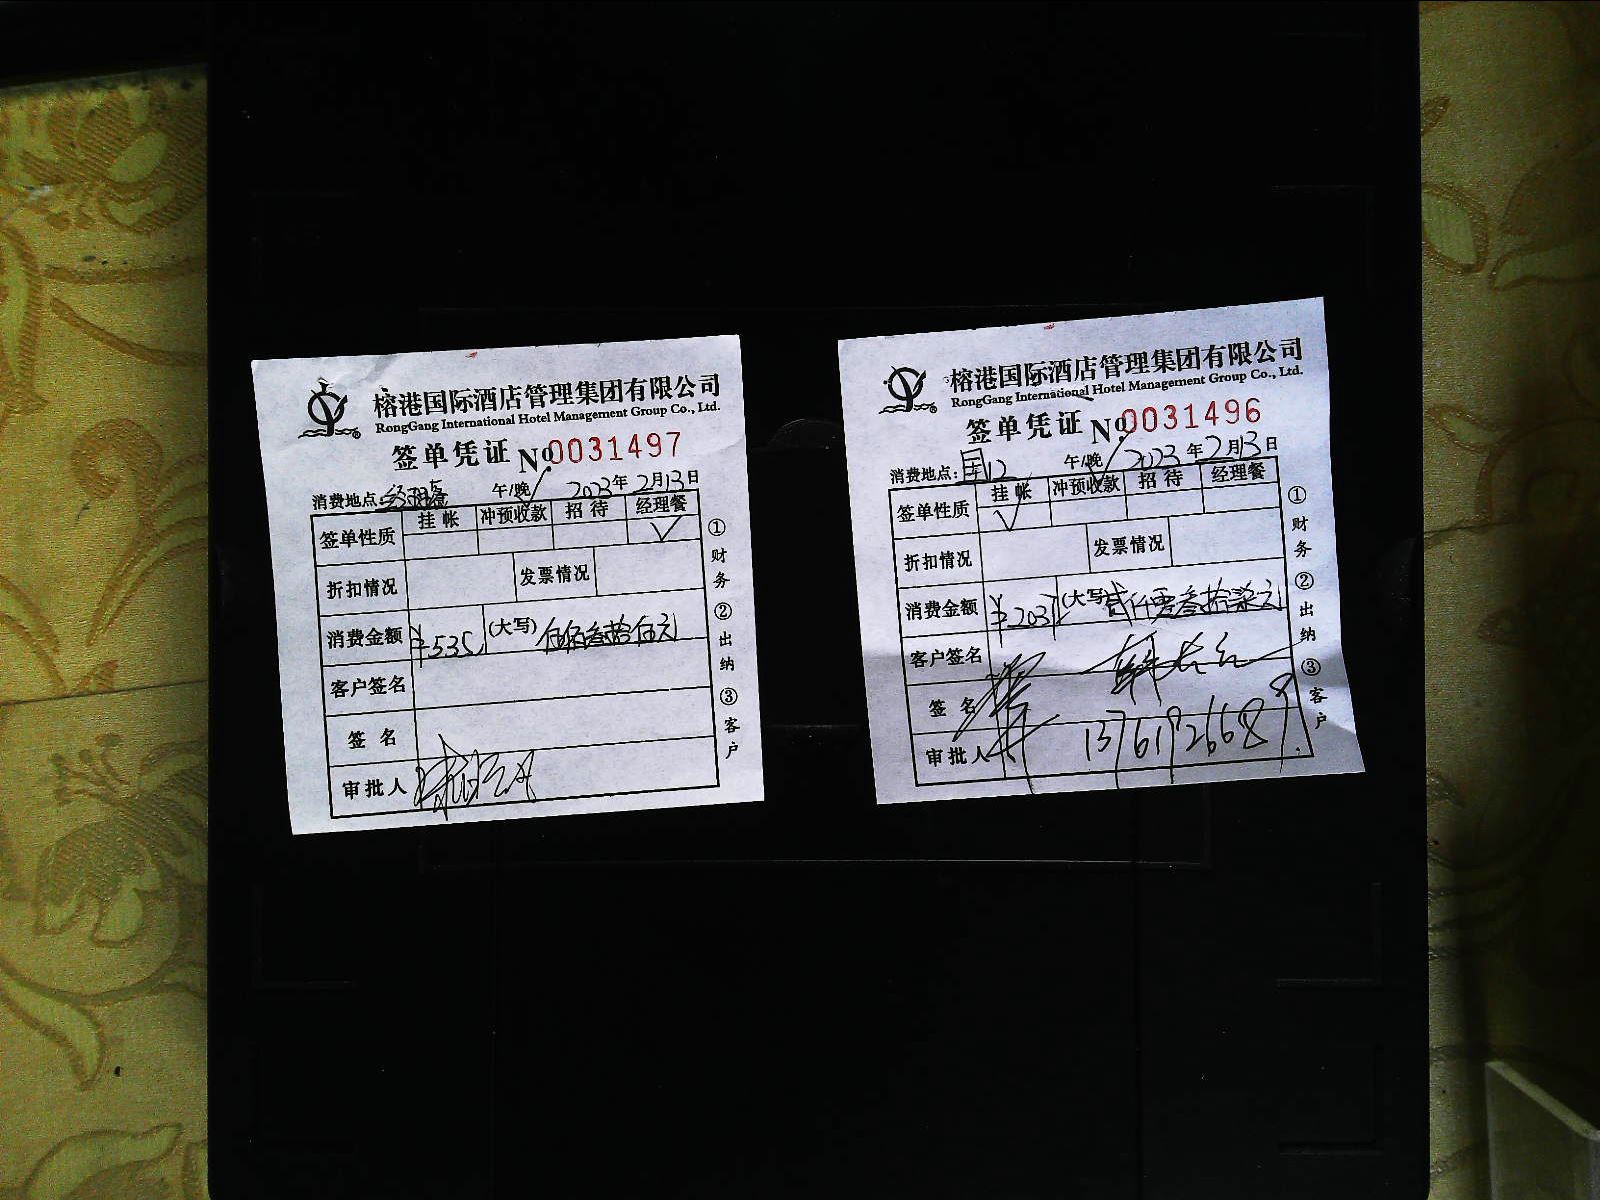 榕港国际酒店管理集团有限公司
RongGang International Hotel Management Group Co., Ltd.
签单凭证 No 0031497
消费地点: 午/晚 2023年2月13日
签单性质 挂帐 冲预收款 招待 经理餐
✓
折扣情况 发票情况
消费金额 ¥535 (大写) 伍佰叁拾伍元
客户签名
签名
审批人
①财务 ②出纳 ③客户
榕港国际酒店管理集团有限公司
RongGang International Hotel Management Group Co., Ltd.
签单凭证 No 0031496
消费地点: 12 午/晚 2023年2月13日
签单性质 挂帐 冲预收款 招待 经理餐
✓
折扣情况 发票情况
消费金额 ¥2037 (大写) 贰仟零叁拾柒元
客户签名
签名
审批人 13761926689
①财务 ②出纳 ③客户